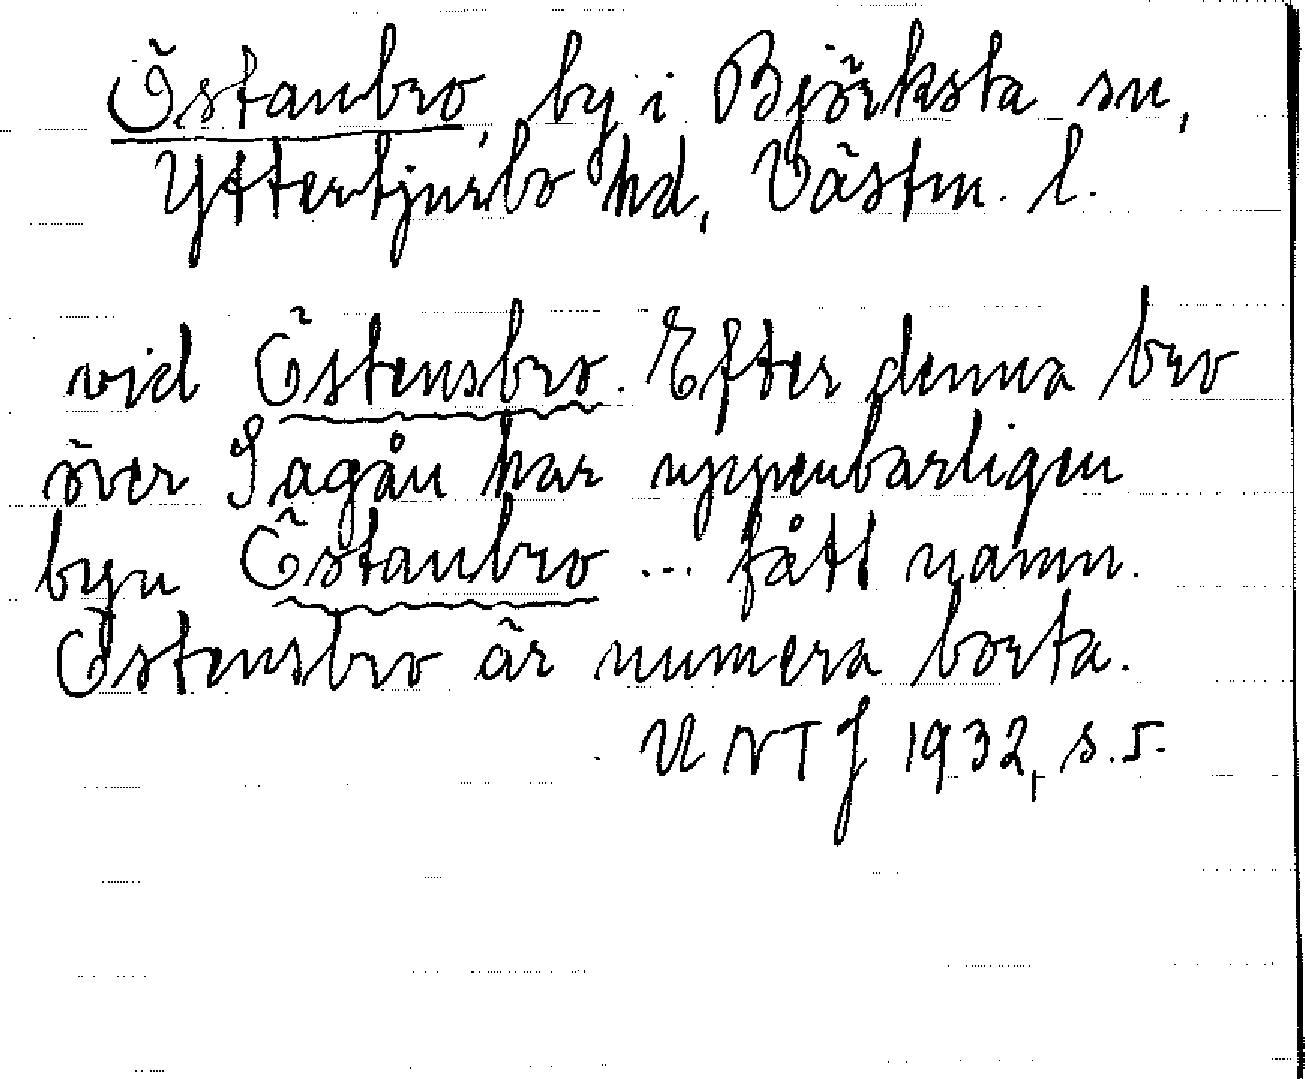 Östanbro, by i Björksta sn,
Yttertjurbo hd, Västm. l.
vid Östensbro. Efter denna bro
över Sagån har uppenbarligen
byn Östanbro ... fått namn.
Östensbro är numera borta.
UNTJ 1932, s. 5.